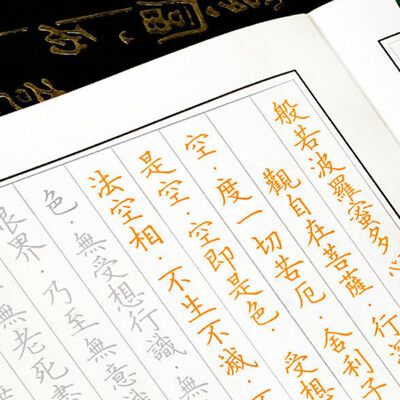 般若波羅蜜多心
觀自在菩薩·行深
空·度一切苦厄·舍利子
是空·空即是色·受想
法空相·不生不滅·不
色·無受想行識·無
眼界 乃至無意識
無老死盡